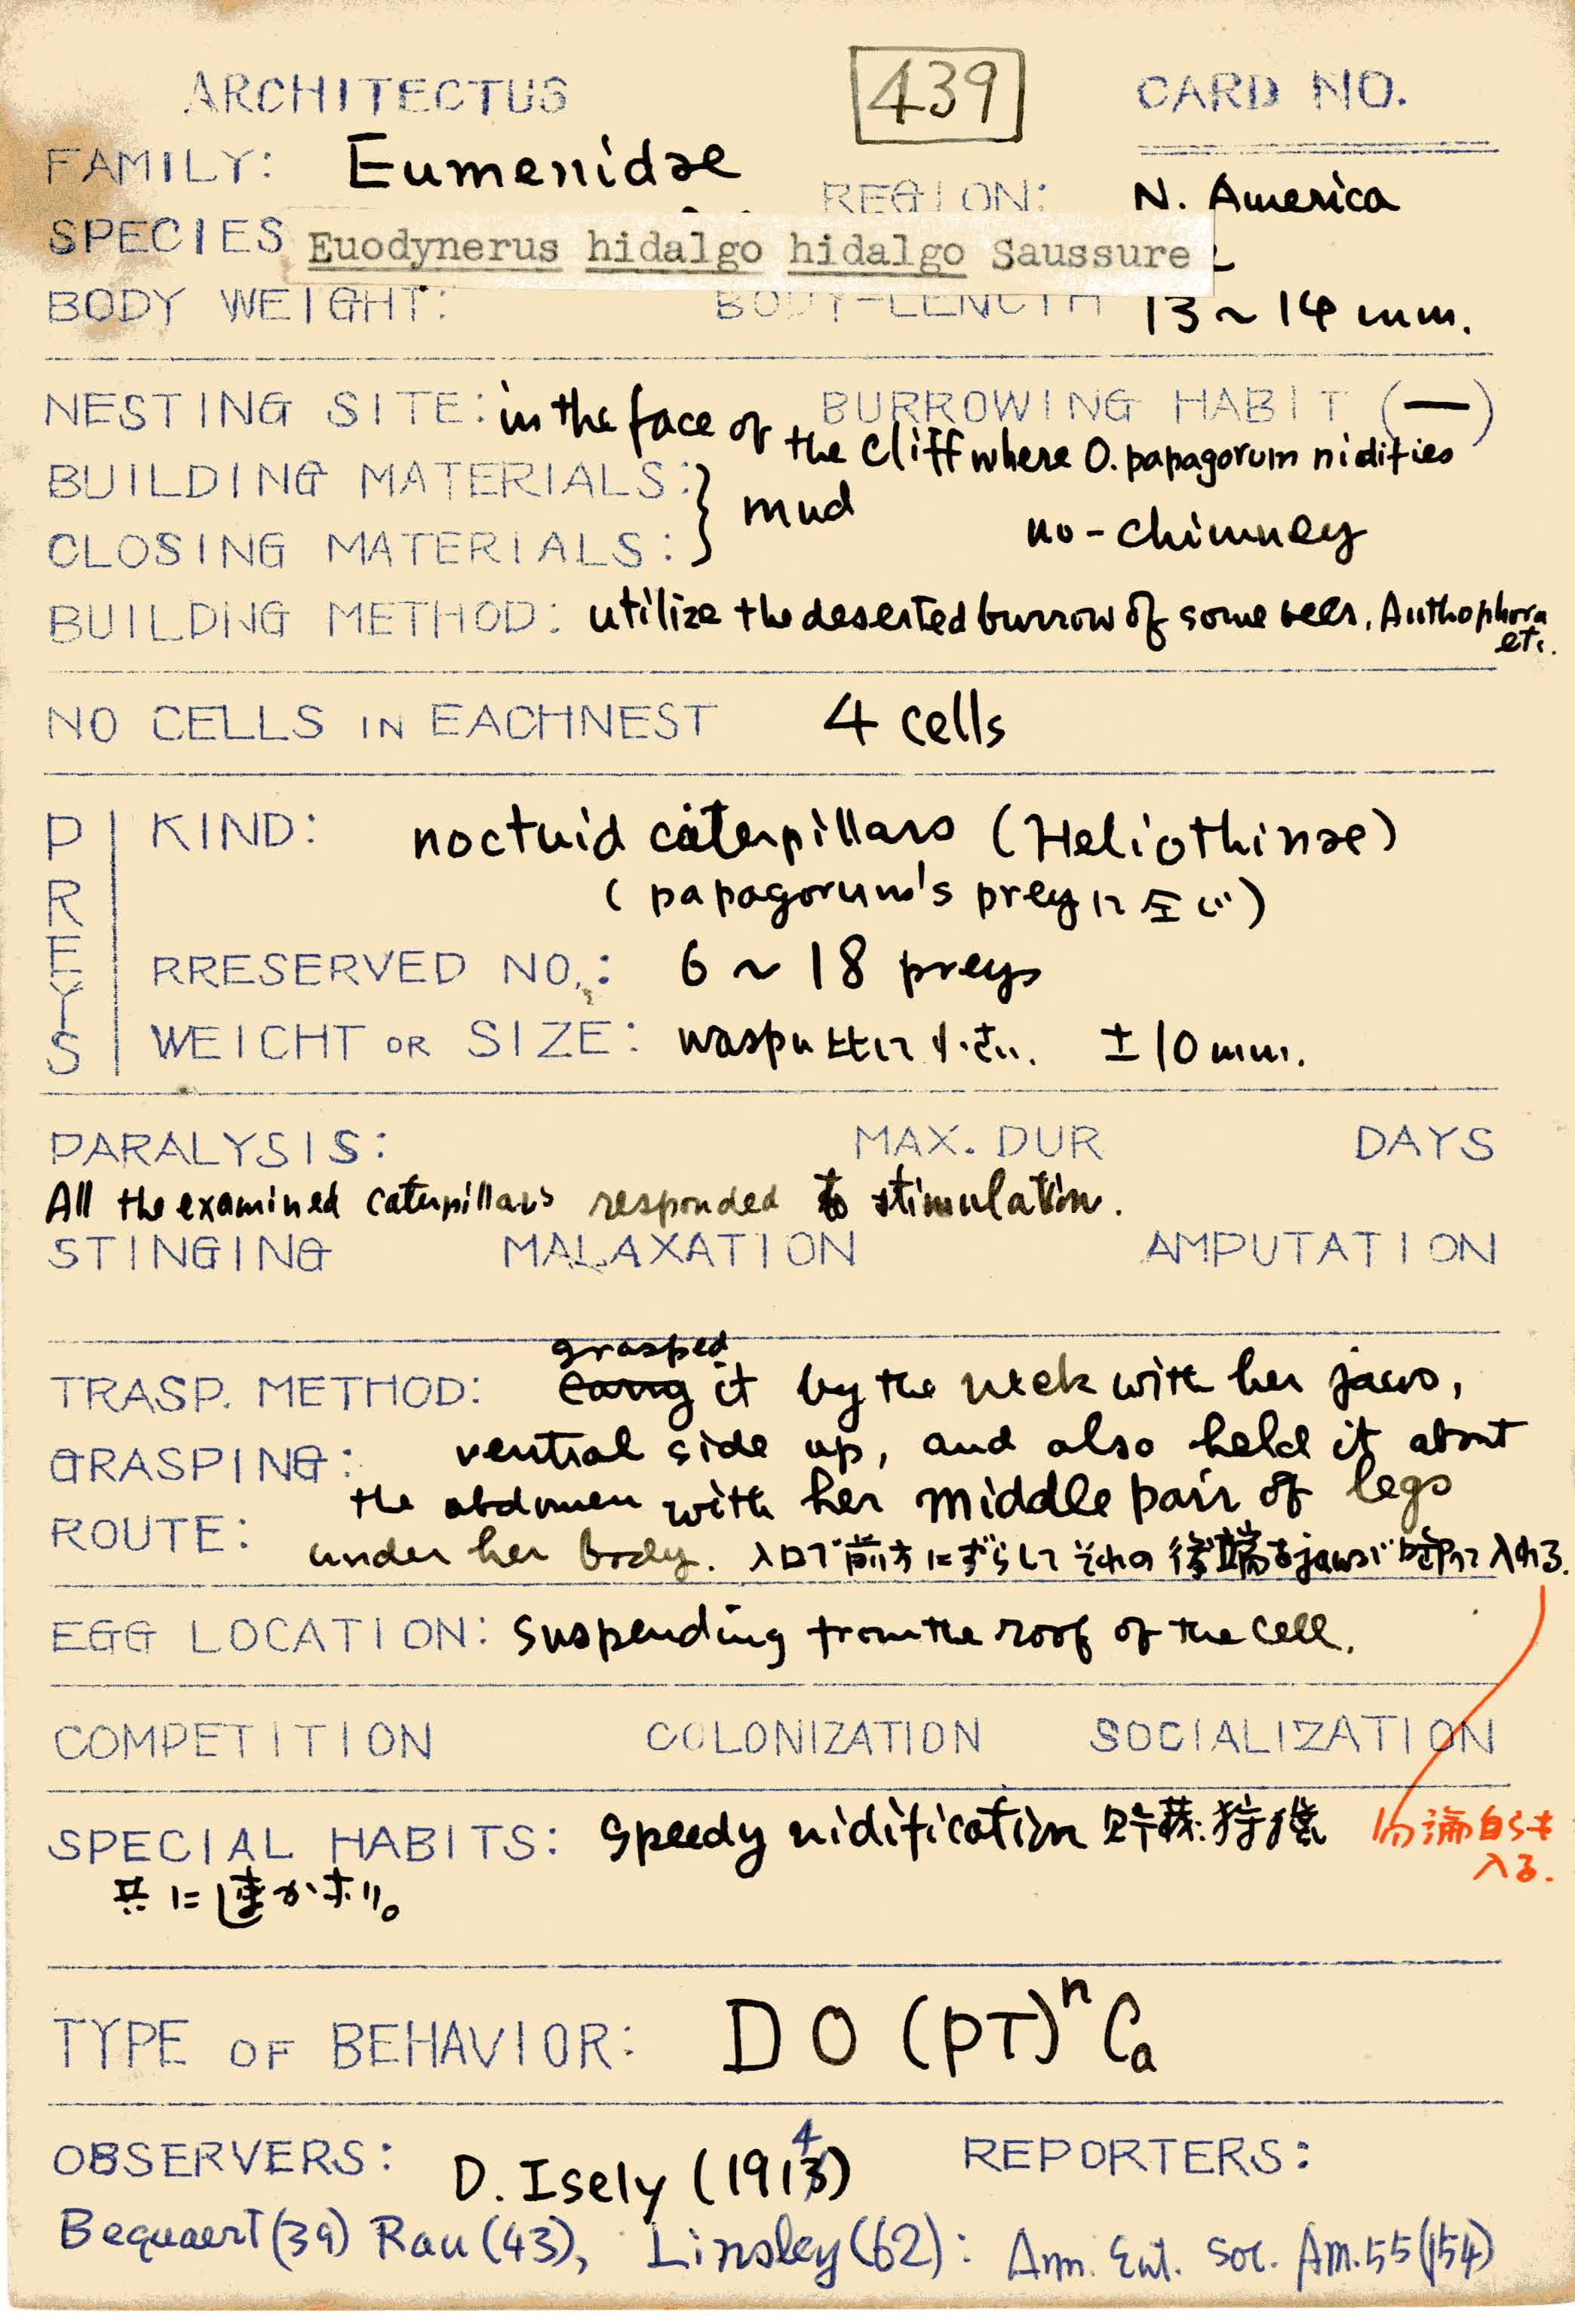 ARCHITECTUS 439 CARD NO.
FAMILY: Eumenidae REGION: N. America
SPECIES Euodynerus hidalgo hidalgo Saussure
BODY WEIGHT: BODY-LENGTH 13~14 mm.
NESTING SITE: in the face of the cliff where O. papagorum nidifies BURROWING HABIT (—)
BUILDING MATERIALS: } mud
CLOSING MATERIALS: no-chimney
BUILDNG METHOD: utilize the deserted burrow of some bees, Anthophora etc.
NO CELLS IN EACHNEST 4 cells
PREYS
KIND: noctuid caterpillars (Heliothinae)
(papagorum's prey に全じ)
RRESERVED NO.: 6~18 preys
WEICHT OR SIZE: waspの比に小さい. ±10mm.
PARALYSIS: MAX. DUR DAYS
All the examined caterpillars responded to stimulation.
STINGING MALAXATION AMPUTATION
grasped
TRASP. METHOD: carry it by the neck with her jaws,
GRASPING: ventral side up, and also held it about
the abdomen with her middle pair of legs
ROUTE: under her body. 入口で前方にずらしてそれの後端をjawsで 入れる.
EGG LOCATION: suspending from the roof of the cell.
COMPETITION COLONIZATION SOCIALIZATION
SPECIAL HABITS: speedy nidification 貯蔵.狩猟
共に速かなり。
勿論自らも
入る.
TYPE OF BEHAVIOR: DO(PT)ⁿCa
OBSERVERS: D. Isely (1914) REPORTERS:
Bequaert(39) Rau(43), Linsley(62): Ann. Ent. Soc. Am. 55(154)